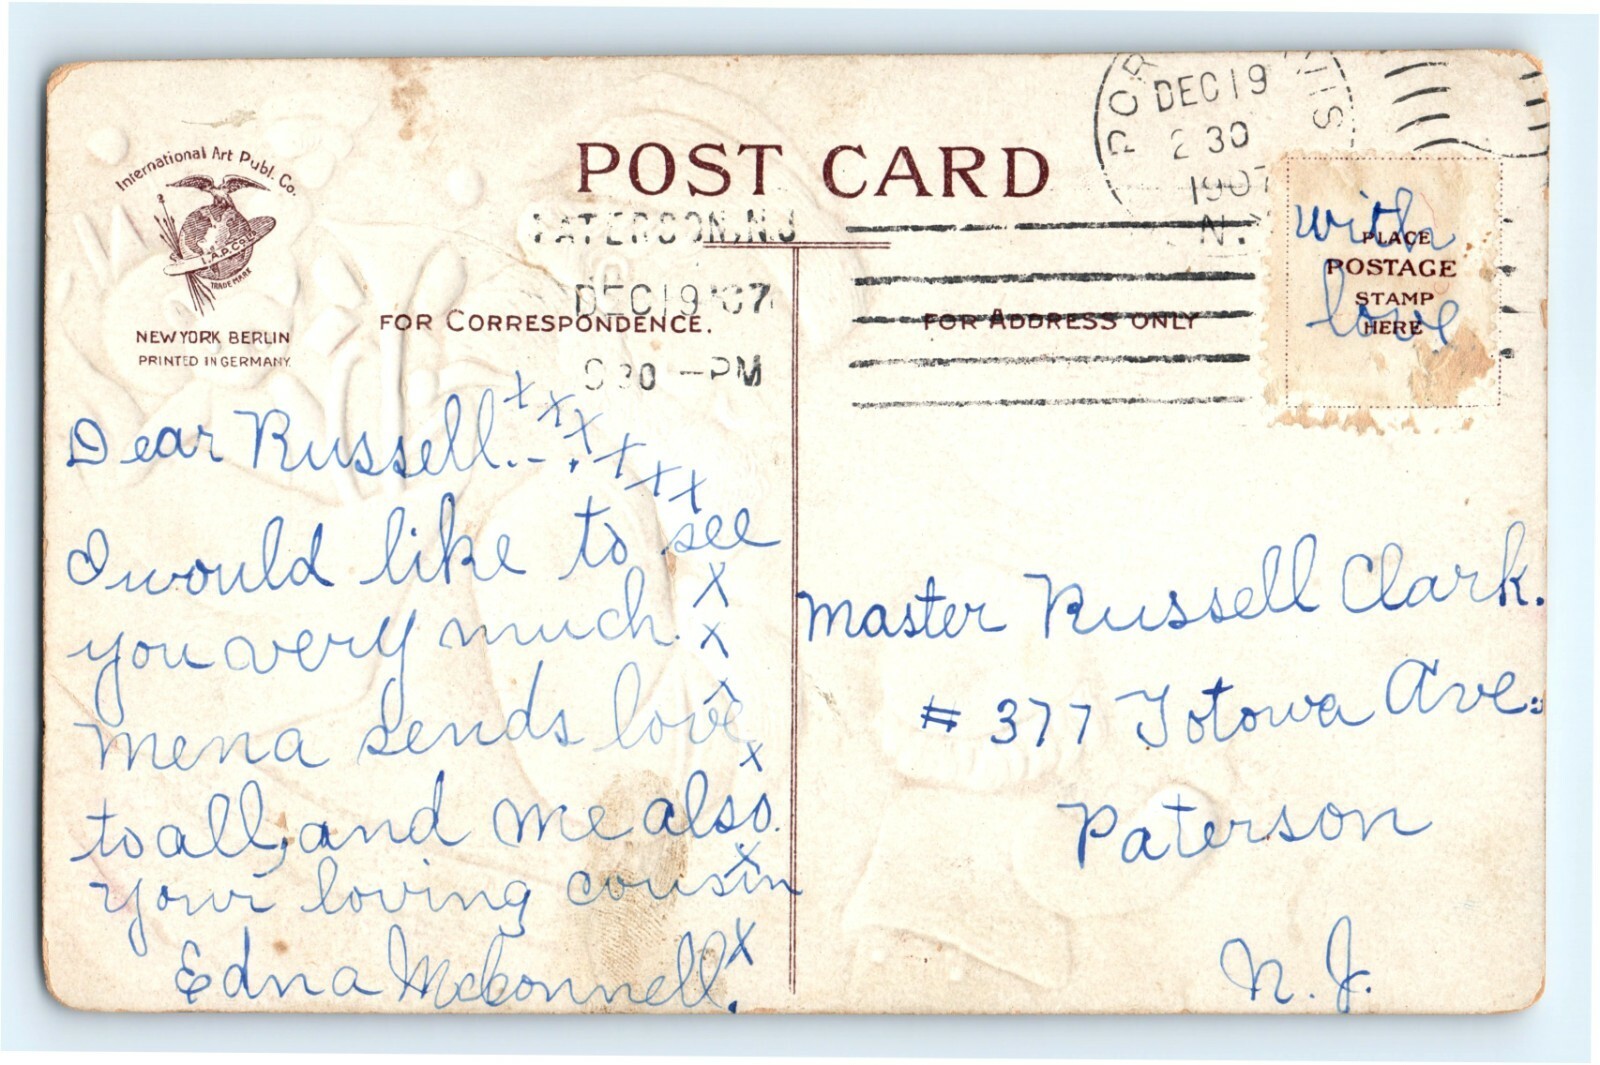 International Art Publ. Co.
I.A.P.Co.
TRADE MARK
NEW YORK BERLIN
PRINTED IN GERMANY
POST CARD
PATERSON, N.J.
DEC 19 '07
30 - PM
FOR CORRESPONDENCE.
FOR ADDRESS ONLY
POR
SIN
DEC 19
2 30
1907
N.
PLACE
POSTAGE
STAMP
HERE
with
love
Dear Russell..-. x x x x x x
I would like to see
x
you very much. x
x
Mena sends love
x
to all, and me also.
x
your loving cousin
x
Edna McConnell.
Master Russell Clark.
# 377 Totowa Ave.
Paterson
N. J.